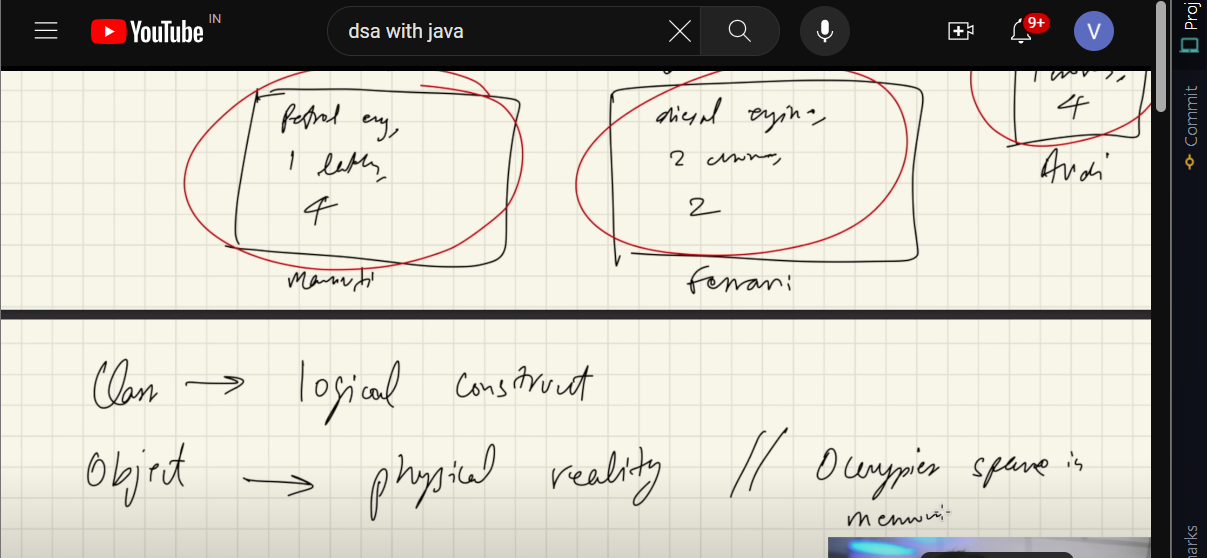 YouTube IN
dsa with java
9+
V
Proj
Commit
Petrol eng,
1
4
Maruti
engine,
2
2
Ferrari
4
Audi
Class → logical construct
Object → physical reality // Occupies space in
memory
arks